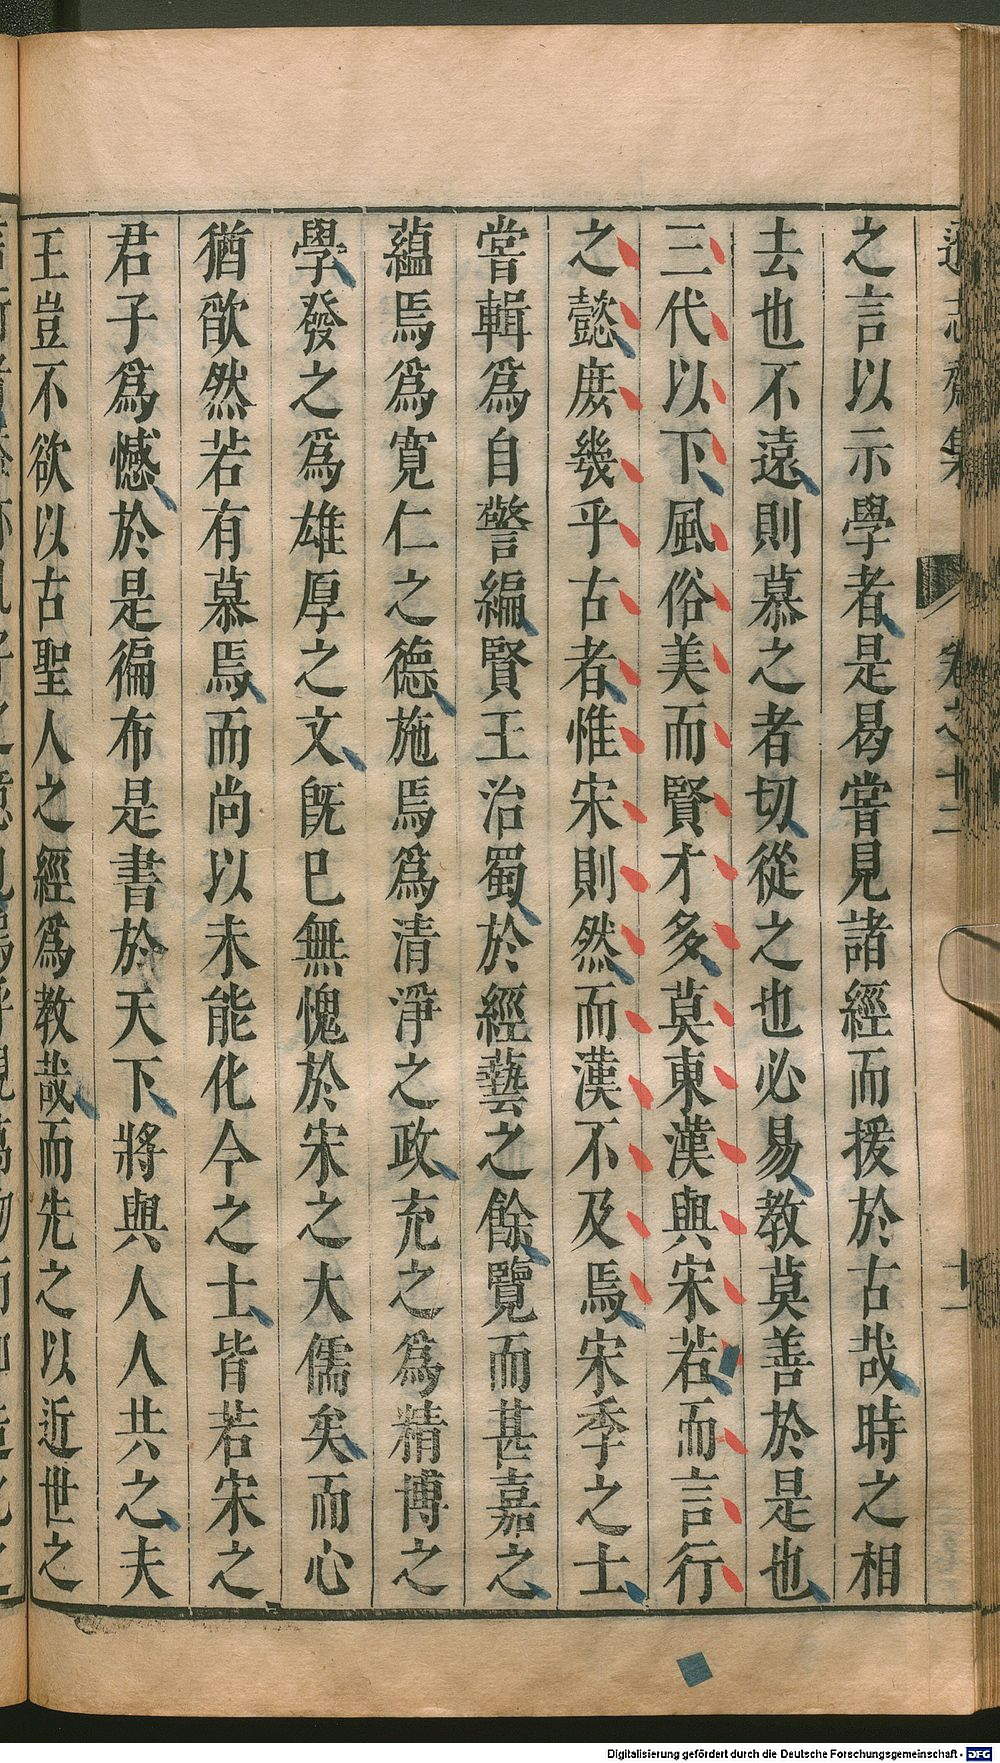 之言以示學者是曷嘗見諸經而援於古哉時之相
去也不遠則慕之者切從之也必易教莫善於是也
三代以下風俗美而賢才多莫東漢與宋若而言行
之懿庻幾乎古者惟宋則然而漢不及焉宋季之士
嘗輯爲自警編賢王治蜀於經藝之餘覽而甚嘉之
蘊焉爲寛仁之德施焉爲清淨之政充之爲精博之
學發之爲雄厚之文旣已無愧於宋之大儒矣而心
猶欿然若有慕焉而尚以未能化今之士皆若宋之
君子爲憾於是徧布是書於天下將與人人共之夫
王豈不欲以古聖人之經爲教哉而先之以近世之
Digitalisierung gefördert durch die Deutsche Forschungsgemeinschaft - DFG